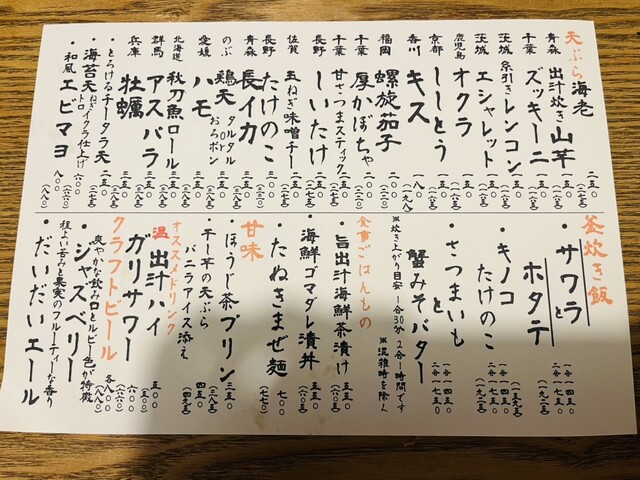 天ぷら
海老 二五〇 (二七五)
青森 出汁炊き山芋 二五〇 (二七五)
千葉 ズッキーニ 二五〇 (二七五)
茨城 糸引きレンコン 二五〇 (二七五)
茨城 エシャレット 二五〇 (二七五)
鹿児島 オクラ 二五〇
京都 ししとう
香川 キス 一八〇 (一九八)
福岡 螺旋茄子 二〇〇
千葉 厚かぼちゃ 二〇〇
千葉 甘さつまスティック 二五〇 (二七五)
長野 しいたけ 二五〇 (二七五)
佐賀 玉ねぎ味噌チー 二五〇 (二七五)
長野 たけのこ 三〇〇
青森 長イカ
のぶ 鶏天 タルタル or おろポン
愛媛 ハモ 三五〇
北海道 秋刀魚ロール 三五〇
群馬 アスパラ 三五〇
兵庫 牡蠣 三五〇
・とろけるチータラ天 二五〇 (二七五)
・海苔天 ねぎトロイクラ仕上げ 六〇〇 (六六〇)
・和風エビマヨ 八〇〇 (八八〇)
釜炊き飯
・サワラとホタテ 一合一四五〇 二合一七五〇 (一九二五)
・キノコとたけのこ 一合一四五〇 二合一七五〇 (一九二五)
・さつまいもと蟹みそバター 一合一四五〇 二合一七五〇 (一九二五)
※炊き上がり目安 1合30分 2合1時間です
※混雑時を除く
食事ごはんもの
・旨出汁海鮮茶漬け 五五〇 (六〇五)
・海鮮ゴマダレ漬丼 五五〇 (六〇五)
・たぬきまぜ麺 七〇〇 (七七〇)
甘味
・ほうじ茶プリン 三五〇 (三八五)
・干し芋の天ぷら バニラアイス添え 四五〇 (四九五)
オススメドリンク
温 出汁ハイ 五〇〇 (五五〇)
ガリサワー 六〇〇 (六六〇)
クラフトビール 各八〇〇 (八八〇)
爽やかな飲み口とルビー色が特徴
・ジャズベリー
程よい苦みと果実のフルーティーな香り
・だいだいエール